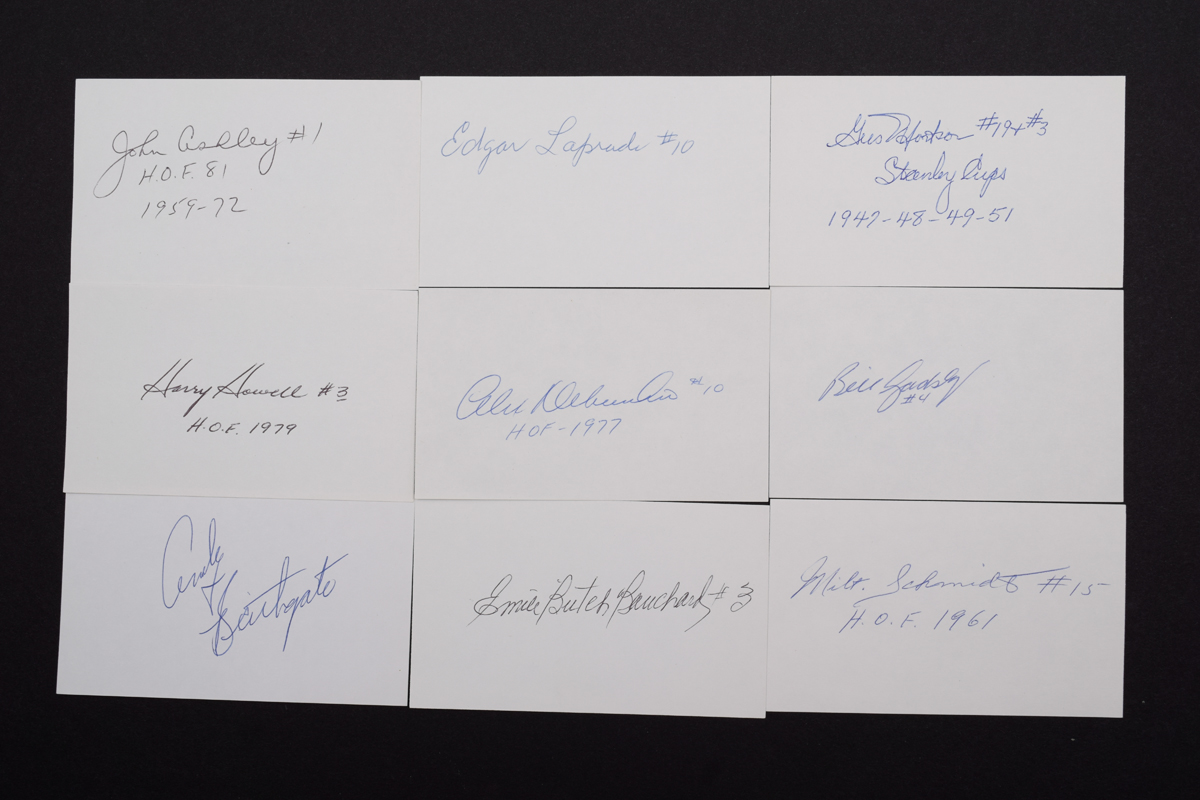 John Ashley #1
H.O.F. 81
1959-72
Edgar Laprade #10
Gus Mortson #19+#3
Stanley Cups
1947-48-49-51
Harry Howell #3
H.O.F. 1979
Alex Delvecchio #10
HOF-1977
Bill Gadsby
#4
Andy
Bathgate
Emile Butch Bouchard #3
Milt. Schmidt #15
H.O.F. 1961